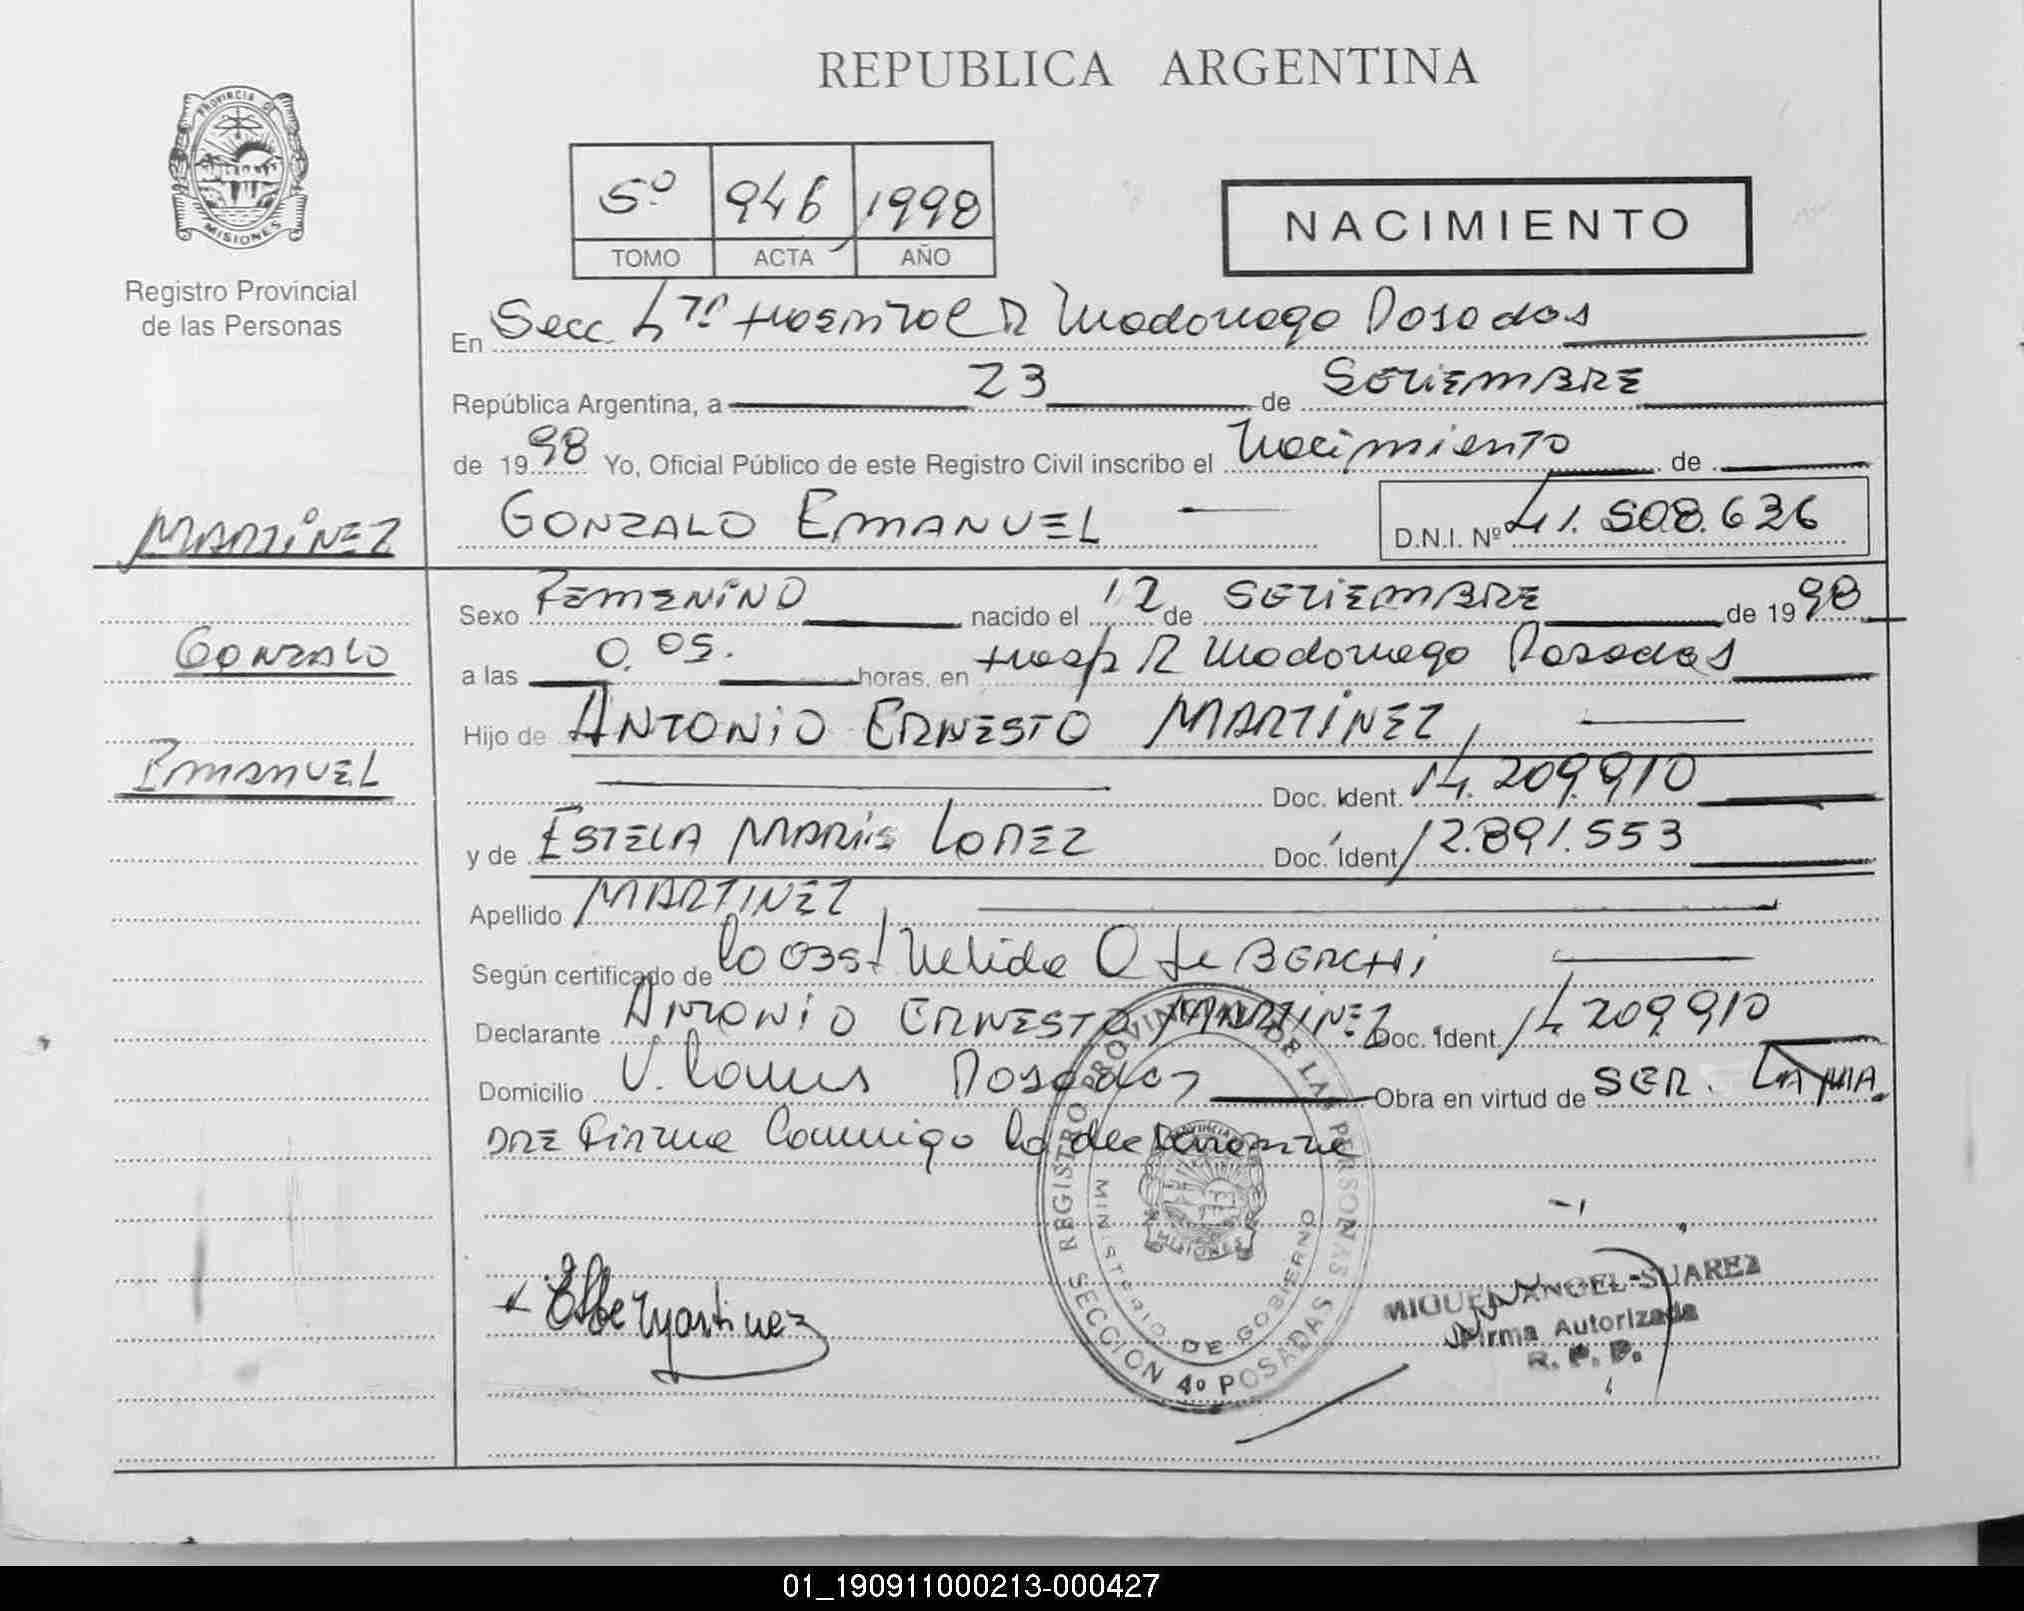 REPUBLICA ARGENTINA
PROVINCIA DE
MISIONES
Registro Provincial
de las Personas
5º 946 1998
TOMO ACTA AÑO
NACIMIENTO
En Secc 4ta Hospital R Madariaga Posadas
República Argentina, a 23 de SETIEMBRE
de 1998 Yo, Oficial Público de este Registro Civil inscribo el Nacimiento de
MARTINEZ
GONZALO EMANUEL
D.N.I. Nº 41.508.636
GONZALO
EMANUEL
Sexo FEMENINO nacido el 12 de SETIEMBRE de 1998
a las 0.05. horas, en Hosp R Madariaga Posadas
Hijo de ANTONIO ERNESTO MARTINEZ,
Doc. Ident. 14.209.910
y de ESTELA MARIS LOPEZ Doc. Ident 12.891.553
Apellido MARTINEZ
Según certificado de la obst Nelida
Declarante ANTONIO ERNESTO MARTINEZ Doc. Ident. 14.209.910
Domicilio Posadas Obra en virtud de SER. LA MA
DRE Firma Conmigo la declarante
Martinez
REGISTRO PROVINCIAL DE LAS PERSONAS
MINISTERIO DE GOBIERNO
MISIONES
SECCION 4º POSADAS
MIGUEL ANGEL SUAREZ
Firma Autorizada
R. P. P.
01_190911000213-000427